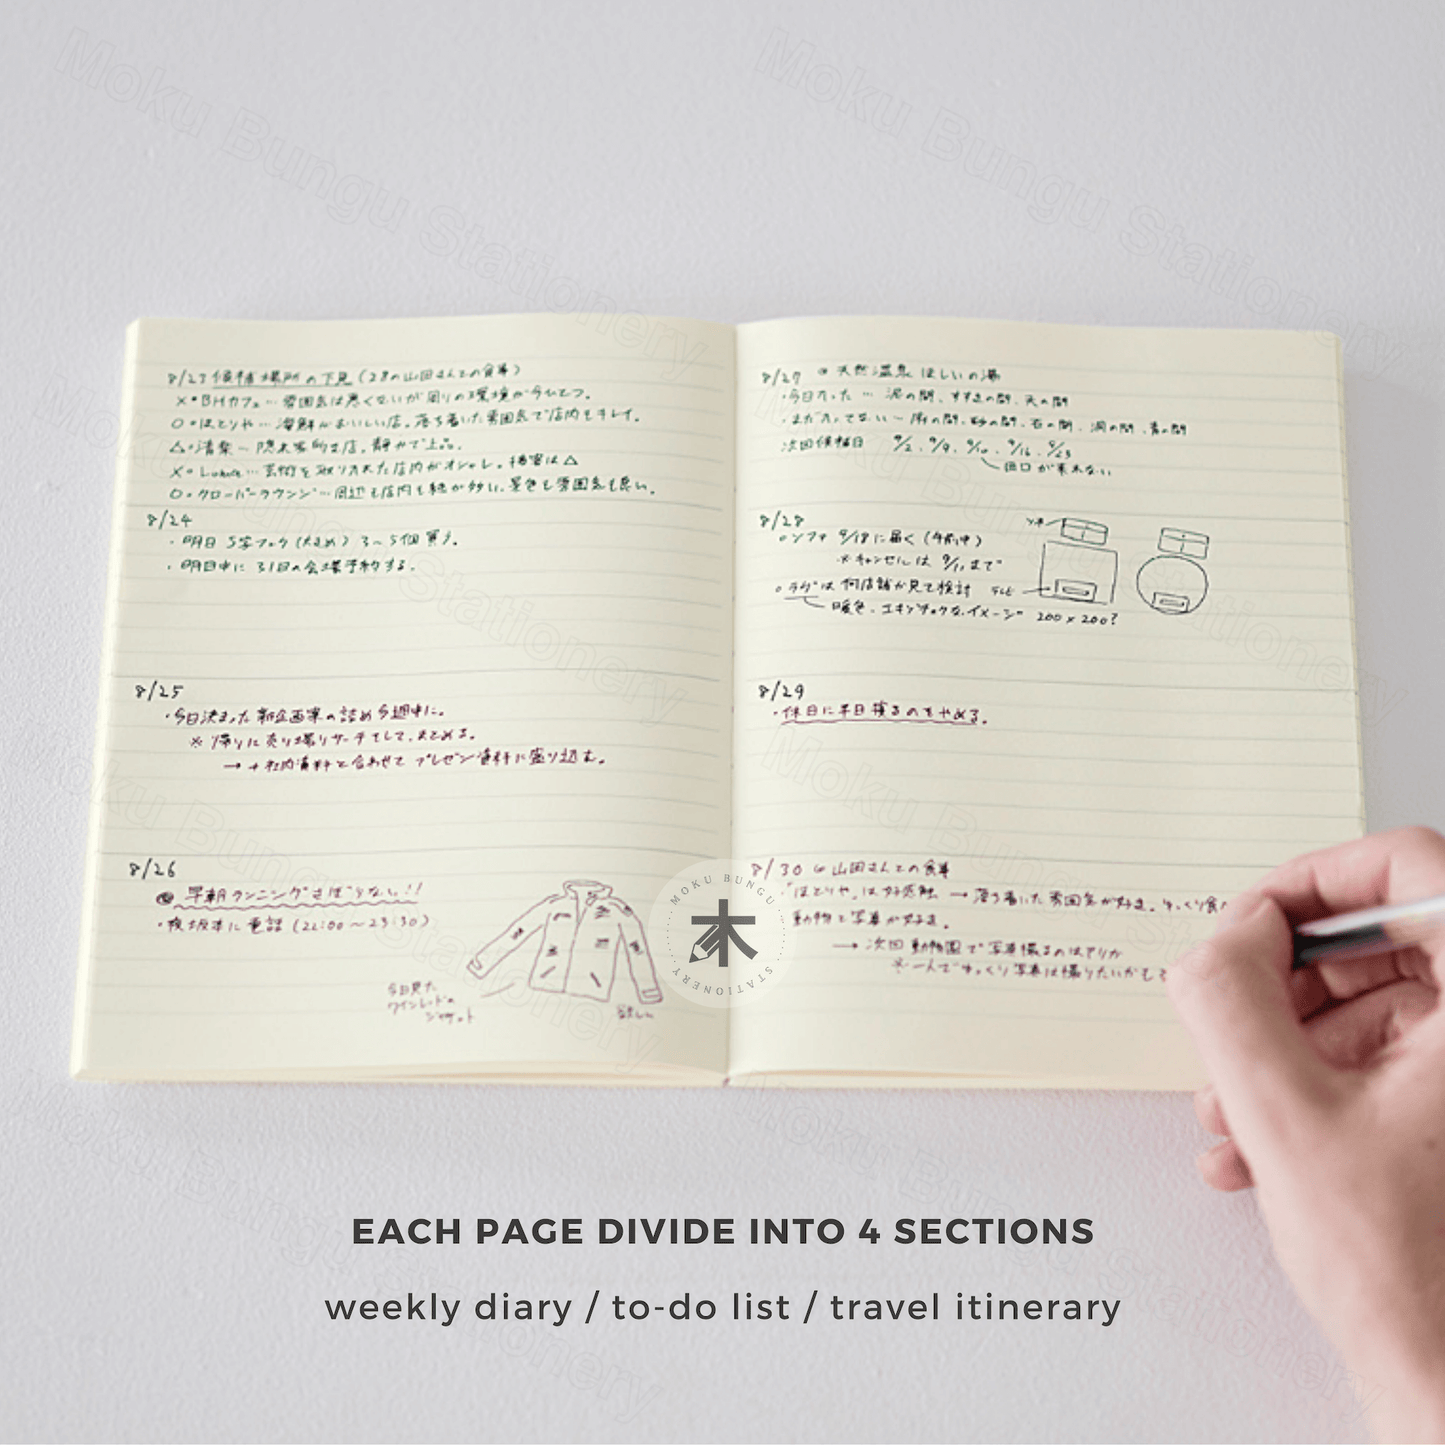 8/23 候補場所の下見（28の山田さんとの食事）
×・BHカフェ…雰囲気は悪くないが周りの環境が今ひとつ。
○・ほとりや…海鮮がおいしい店。落ち着いた雰囲気で店内もキレイ。
△・清楽…隠れ家的な店。静かで上品。
×・…芸術を取り入れた店内がオシャレ。接客は△
○・クローバーラウンジ…周辺も店内も緑が多い。景色も雰囲気も良い。
8/24
・明日 S字フック（大きめ）3〜5個買う。
・明日中に31日の会場予約する。
8/25
・今日決まった新企画案の詰め今週中に。
※帰りに売り場リサーチをして、まとめる。
→＋社内資料と合わせてプレゼン資料に盛り込む。
8/26
早朝ランニングさぼらない!!
・夜坂本に電話（22:00〜23:30）
今日見た
ワインレッドの
ジャケット
欲しい
8/27 天然温泉 ほしいの湯
・今日入った… 泥の間、すすきの間、天の間
・まだ入ってない… 雨の間、砂の間、石の間、洞の間、青の間
次回候補日 9/2、9/9、9/10、9/16、9/23
田口が来れない
8/28
ソファ 9/18に届く（午前中）
※キャンセルは 9/11まで
ラグは何店舗か見て検討
テレビ
暖色・エキゾチックなイメージ 200×200?
8/29
・休日に半日寝るのをやめる。
8/30 山田さんとの食事
・「ほとりや」は好感触 → 落ち着いた雰囲気が好き。ゆっくり食
動物と写真が好き。
→ 次回 動物園で写真撮るのはアリか
※一人でゆっくり写真は撮りたいかも
MOKU BUNGU
木
STATIONERY
EACH PAGE DIVIDE INTO 4 SECTIONS
weekly diary / to-do list / travel itinerary
Moku Bungu Stationery
Moku Bungu Stationery